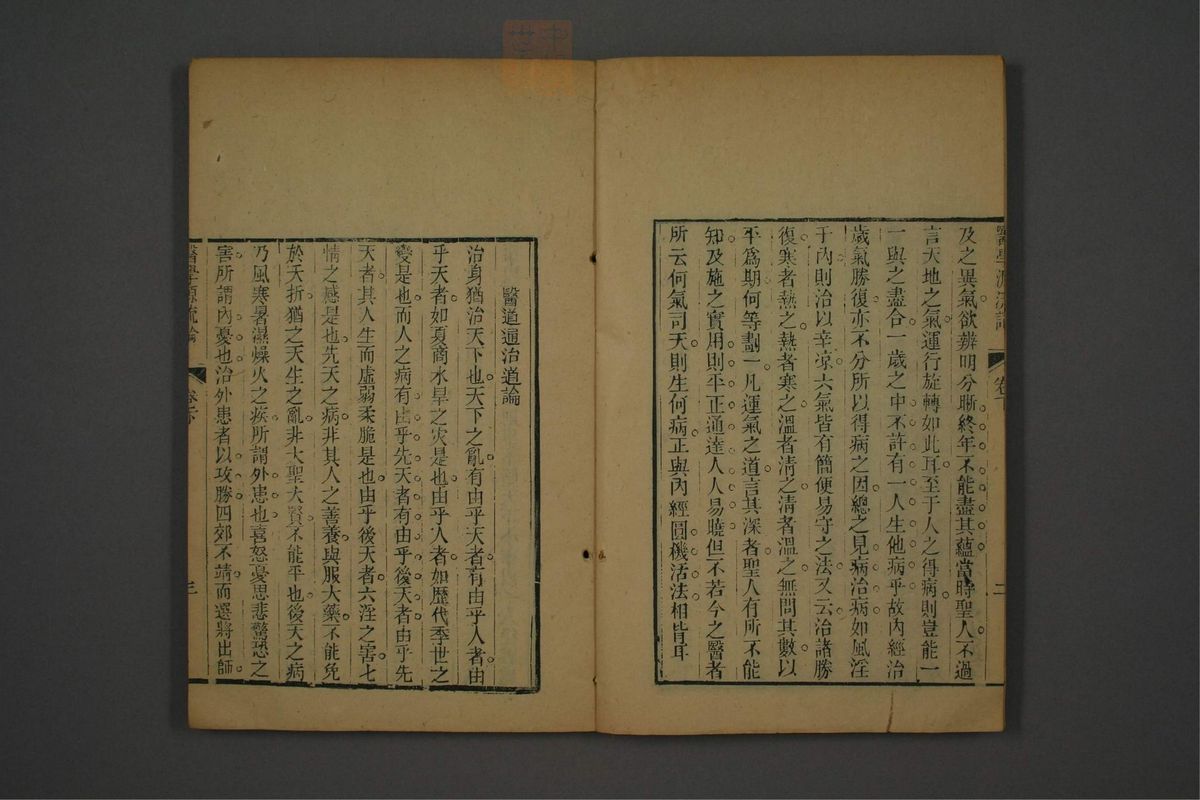 及之異氣欲辨明分晰終年不能盡其蘊當時聖人不過
言天地之氣運行旋轉如此耳至于人之得病則豈能一
一與之盡合一歲之中不許有一人生他病乎故內經治
歲氣勝復亦不分所以得病之因總之見病治病如風淫
于內則治以辛凉六氣皆有簡便易守之法又云治諸勝
復寒者熱之熱者寒之溫者淸之淸者溫之無問其數以
平爲期何等劃一凡運氣之道言其深者聖人有所不能
知及施之實用則平正通達人人易曉但不若今之醫者
所云何氣司天則生何病正與內經圓機活法相背耳
醫道通治道論
治身猶治天下也天下之亂有由乎天者有由乎人者由
乎天者如夏商水旱之災是也由乎人者如歷代季世之
變是也而人之病有由乎先天者有由乎後天者由乎先
天者其人生而虛弱柔脆是也由乎後天者六淫之害七
情之感是也先天之病非其人之善養與服大藥不能免
於夭折猶之天生之亂非大聖大賢不能平也後天之病
乃風寒暑濕燥火之疾所謂外患也喜怒憂思悲驚恐之
害所謂內憂也治外患者以攻勝四郊不靖而選將出師
醫學源流論
卷下
三
醫學源流論
卷下
二